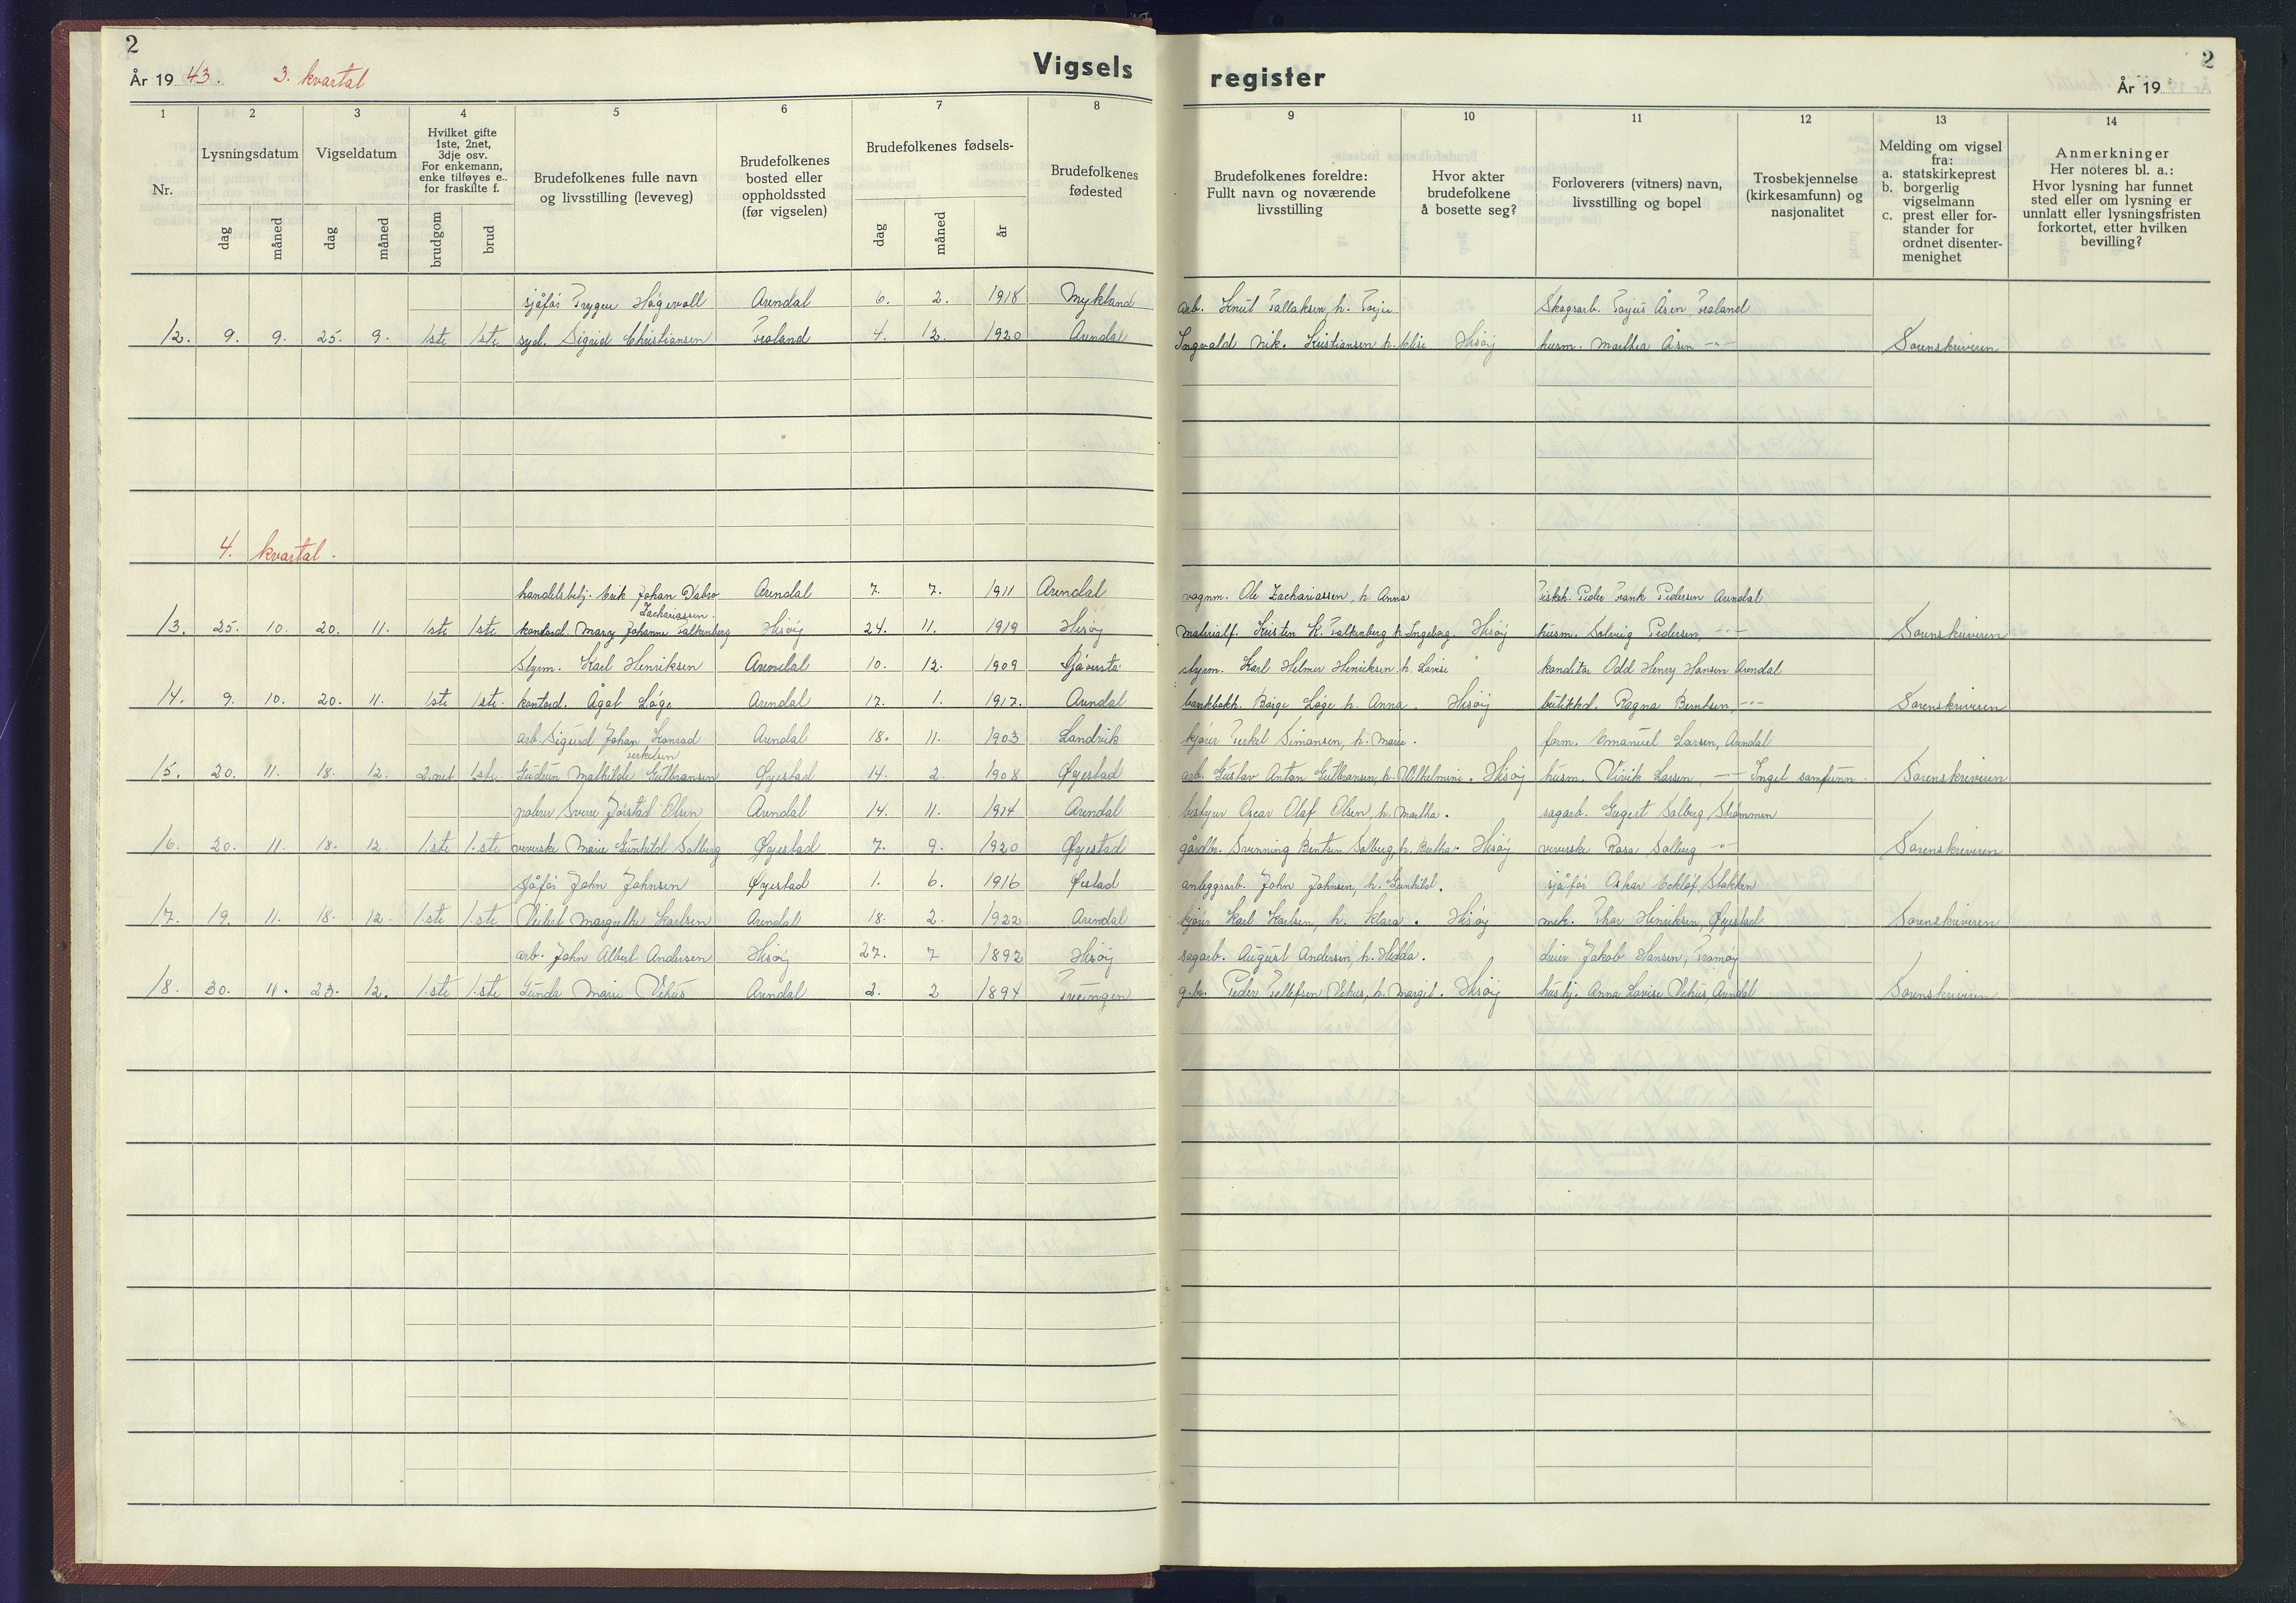 2
År 19 43. 3. kvartal
Vigsels register
2
År 19
1 2 3 4 5 6 7 8 9 10 11 12 13 14
Nr.
Lysningsdatum
dag måned
Vigseldatum
dag måned
Hvilket gifte
1ste, 2net,
3dje osv.
For enkemann,
enke tilføyes e..
for fraskilte f.
brudgom brud
Brudefolkenes fulle navn
og livsstilling (leveveg)
Brudefolkenes
bosted eller
oppholdssted
(før vigselen)
Brudefolkenes fødsels-
dag måned år
Brudefolkenes
fødested
Brudefolkenes foreldre:
Fullt navn og noværende
livsstilling
Hvor akter
brudefolkene
å bosette seg?
Forloverers (vitners) navn,
livsstilling og bopel
Trosbekjennelse
(kirkesamfunn) og
nasjonalitet
Melding om vigsel
fra:
a. statskirkeprest
b. borgerlig
vigselmann
c. prest eller for-
stander for
ordnet disenter-
menighet
Anmerkninger
Her noteres bl. a.:
Hvor lysning har funnet
sted eller om lysning er
unnlatt eller lysningsfristen
forkortet, etter hvilken
bevilling?
sjåfør Trygve Høgevoll Arendal 6. 2. 1918 Mykland arb. Knut Tallaksen, h. Torju Skogsarb. Torjus Åsen, Froland
12. 9. 9. 25. 9. 1ste 1ste syd. Sigrid Christiansen Froland 4. 12. 1920 Arendal Ingvald Nik. Kristiansen h. Elise Hisøy husm. Marthea Åsen -"- Sorenskriveren
4. kvartal.
handelsbetj. Erik Johan Dabro Arendal 7. 7. 1911 Arendal vognm. Ole Zachariassen, h. Anna Fiskeh. Peder Frank Pedersen Arendal
Zachariassen.
13. 25. 10. 20. 11. 1ste 1ste kontord. Mary Johanne Falkenberg Hisøy 24. 11. 1919 Hisøy materialf. Kristen K. Falkenberg h. Ingeborg. Hisøy husm. Solveig Pedersen, -"- Sorenskriveren
Styrm. Karl Henriksen Arendal 10. 12. 1909 styrm. Karl Helmer Henriksen, h. Lovise konditor Odd Henry Hansen Arendal
14. 9. 10. 20. 11. 1ste 1ste. kontord. Ågot Løge Arendal 17. 1. 1917. Arendal bankbokh. Børge Løge h. Anna. Hisøy butikkd. Ragna Berntsen, -"- Sorenskriveren
arb. Sigurd Johan Konrad Arendal 18. 11. 1903 Landvik kjører Terkel Simonsen, h. Marie. form. Emanuel Larsen, Arendal
Terkelsen
15. 20. 11. 18. 12. 2.net 1.ste. Gudrun Mathilde Gulbransen Øyestad 14. 2. 1908 Øyestad arb. Gustav Anton Gulbransen, h. Wilhelmine. Hisøy husm. Virik Larsen, -"- Inget samfunn. Sorenskriveren
polerer Sverre Jørstad Olsen Arendal 14. 11. 1914 Arendal bestyrer Oscar Olaf Olsen, h. Martha. sagarb. Gregert Solberg, Strømmen
16. 20. 11. 18. 12. 1.ste 1.ste veverske Marie Gunhild Solberg Øyestad 7. 9. 1920 Øyestad gårdbr. Svenning Bentsen Solberg, h. Bertha. Hisøy veverske Rosa Solberg -"- Sorenskriveren
Sjåfør John Johnsen Øyestad 1. 6. 1916 Øestad anleggsarb. John Johnsen, h. Gunhild. sjåfør Oskar Ekeløf, Stokken
17. 19. 11. 18. 12. 1.ste 1.ste Margrethe Karlsen Arendal 18. 2. 1922 Arendal kjører Karl Karlsen, h. Klara. Hisøy mek. Thor Henriksen, Øyestad Sorenskriveren
arb. John Albert Andersen Hisøy 27. 7 1892 Hisøy sagarb. August Andersen, h. Hedda. dreier Jakob Hansen, Tromøy
18. 30. 11. 23. 12. 1.ste 1.ste Gunda Marie Vehus Arendal 2. 2 1894 Treungen g.br. Peder Tellefsen Vehus, h. Margit. Hisøy hushj. Anna Lovise Vehus, Arendal Sorenskriveren